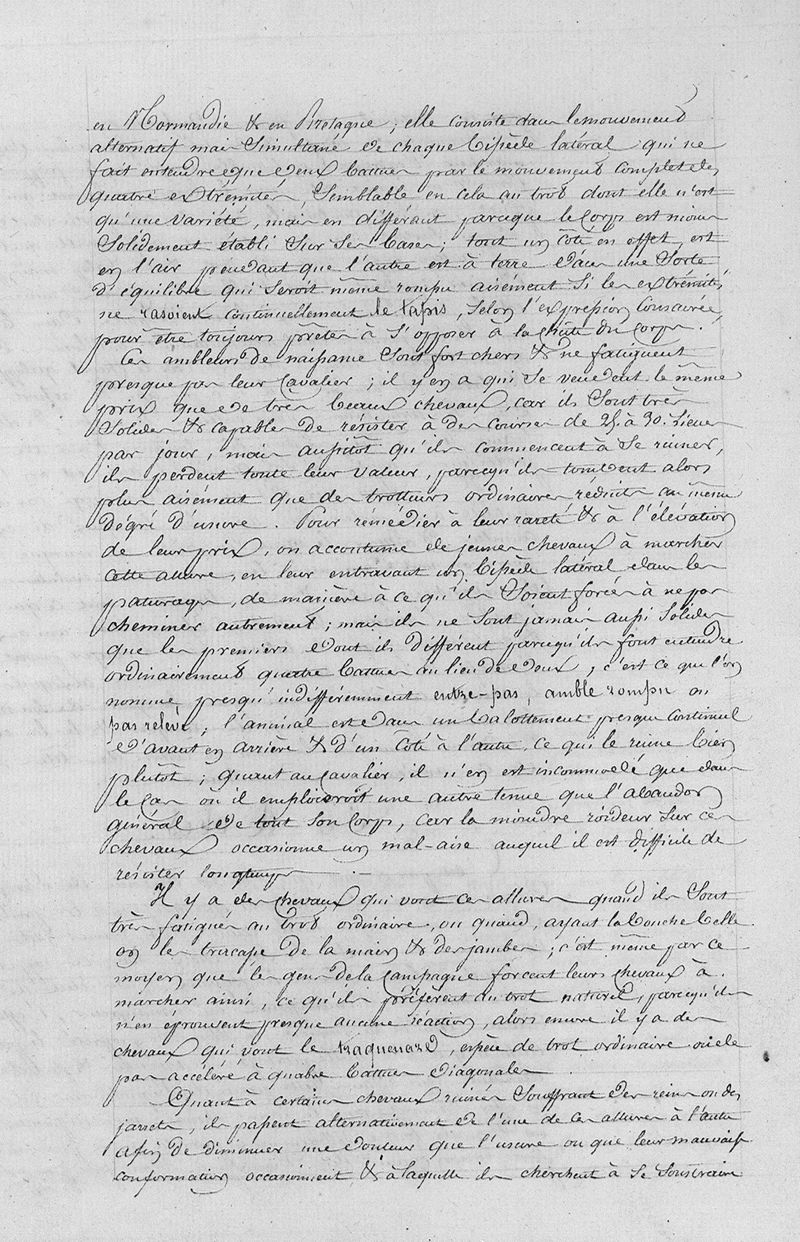 en Normandie & en Bretagne ; elle consiste dans le mouvement
alternatif mais Simultané de chaque bipède latéral qui ne
fait entendre que deux battues par le mouvement complet des
quatre extrémités, Semblable en cela au trot dont elle n'est
qu'une variété, mais en différant parceque le Corps est moins
Solidement établi Sur Ses bases ; tout un côté en effet, est
en l'air pendant que l'autre est à terre dans une Sorte
d'équilibre qui Seroit même rompu aisément Si les extrémités
ne rasoient continuellement le tapis, Selon l'expression Consacrée,
pour être toujours prêtes à S'opposer à la chûte du Corps.
Ces ambleurs de naissance Sont fort chers & ne fatiguent
presque pas leur Cavalier ; il y en a qui Se vendent le même
prix que de très beaux chevaux, car ils Sont très
Solides & capables de résister à des courses de 25 à 30 lieues
par jour, mais aussitôt qu'ils commencent à Se ruiner,
ils perdent toute leur valeur, parcequ'ils tombent alors
plus aisément que des trotteurs ordinaires réduits au même
dégré d'usure. Pour rémédier à leur rareté & à l'élévation
de leur prix, on accoutume de jeunes chevaux à marcher
cette allure, en leur entravant un bipède latéral dans les
paturages, de manière à ce qu'ils Soient forcés à ne pas
cheminer autrement ; mais ils ne Sont jamais aussi Solides
que les premiers dont ils différent parcequ'ils font entendre
ordinairement quatre battues au lieu de deux, c'est ce que l'on
nomme presqu'indifféremment entre-pas, amble rompu ou
pas relevé ; l'animal est dans un balottement presque continuel
d'avant en arrière & d'un Côté à l'autre, ce qui le ruine bien
plutôt ; Quant au cavalier, il n'en est incommodé que dans
le Cas où il emploieroit une autre tenue que l'abandon
général de tout Son Corps, Car la moindre roideur Sur ces
chevaux occasionne un mal-aise auquel il est difficile de
résister longtemps.
Il y a des chevaux qui vont ces allures quand ils Sont
très fatigués au trot ordinaire, ou quand, ayant la bouche belle
on les tracasse de la main & des jambes ; c'est même par ce
moyen que les gens de la Campagne forcent leurs chevaux à
marcher ainsi, ce qu'ils préfèrent au trot naturel, parcequ'ils
n'en éprouvent presque aucune réaction, alors encore il y a des
chevaux qui vont le traquenard, espèce de trot ordinaire où le
pas accéléré à quatre battues diagonales.
Quant à certains chevaux ruinés Souffrant des reins ou des
jarrets, ils passent alternativement de l'une de ces allures à l'autre
afin de diminuer une douleur que l'usure ou que leur mauvaise
conformation occasionnent & à laquelle ils cherchent à Se Soustraire